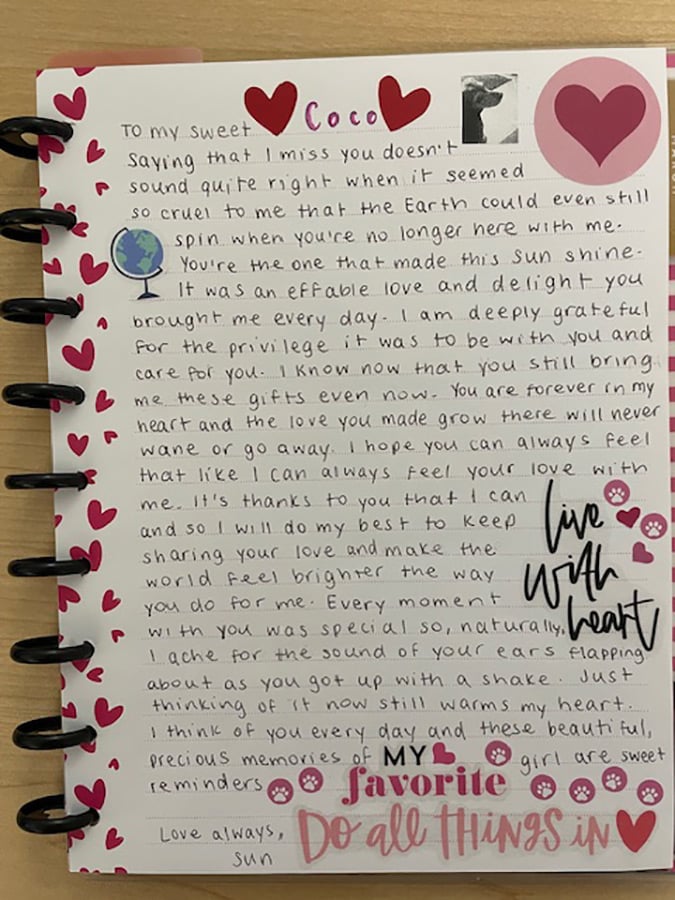 To my sweet Coco
Saying that I miss you doesn't
sound quite right when it seemed
so cruel to me that the Earth could even still
spin when you're no longer here with me.
You're the one that made this sun shine.
It was an effable love and delight you
brought me every day. I am deeply grateful
for the privilege it was to be with you and
care for you. I know now that you still bring
me these gifts even now. You are forever in my
heart and the love you made grow there will never
wane or go away. I hope you can always feel
that like I can always feel your love with
me. It's thanks to you that I can
and so I will do my best to keep
sharing your love and make the
world feel brighter the way
you do for me. Every moment
with you was special so, naturally,
I ache for the sound of your ears flapping
about as you got up with a shake. Just
thinking of it now still warms my heart.
I think of you every day and these beautiful,
precious memories of MY girl are sweet
favorite
reminders
live
with
heart
Love always,
Sun
DO all THINGS in